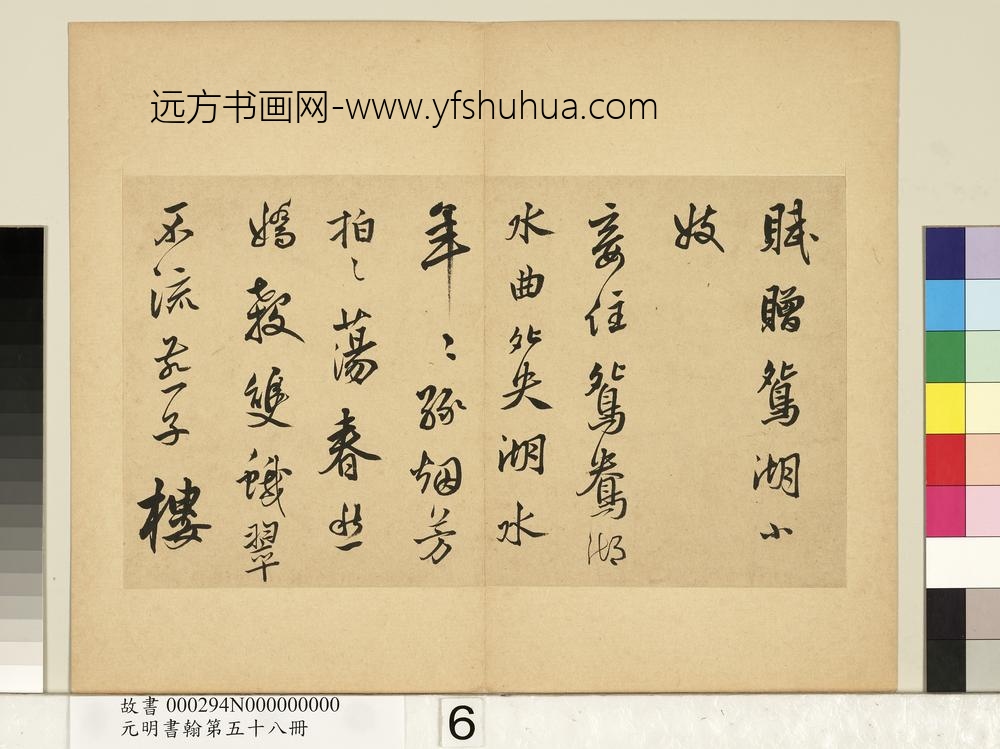 远方书画网-www.yfshuhua.com
賦贈鴛湖小
妓
妾住鴛鴦湖
水曲夗央湖水
年〻緑烟芳
拍〻蕩春
嬌雙蛾翠
不流子樓
故書 000294N000000000
元明書翰第五十八冊
6